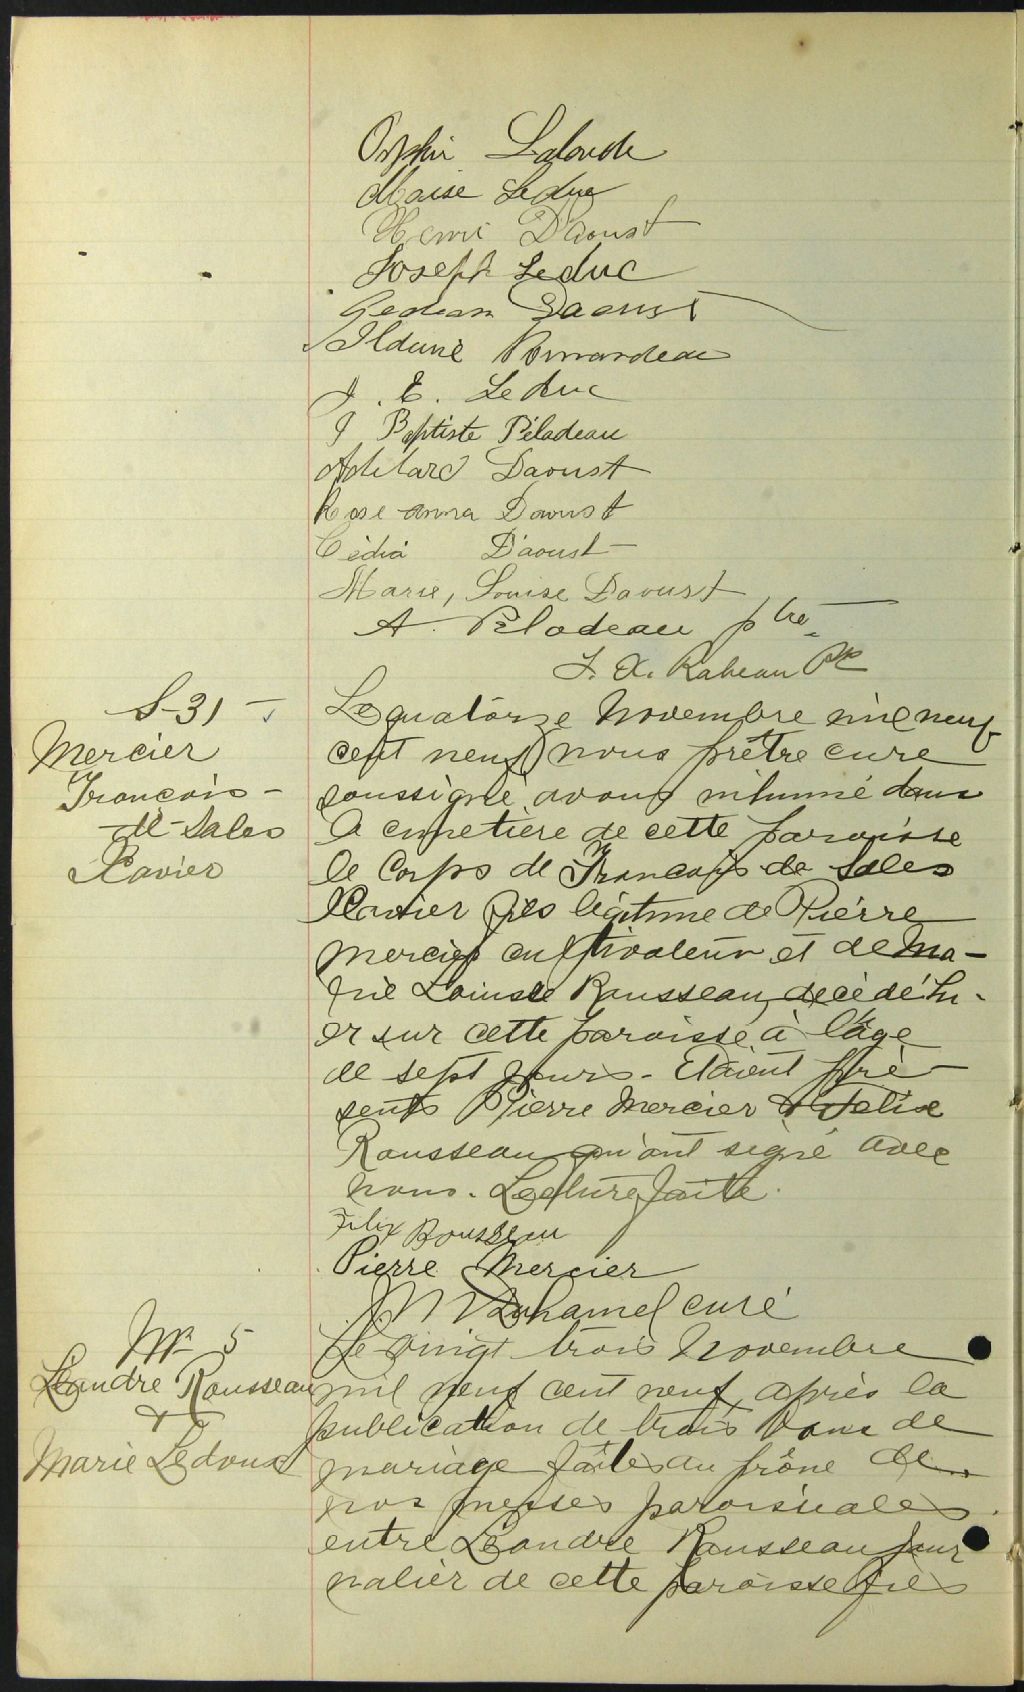 Lalonde
Leduc
Henri D'Aoust
Joseph Leduc
Gedeon Daoust
J. E. Leduc
J Baptiste Péladeau
Adélard Daoust
Rose-Anna Daoust
D'aoust
Marie, Louise Daoust
A. Péladeau ptre
F. X. Rabeau
S-31
Mercier
François-
de-Sales
Xavier
Le quatorze Novembre mil neuf
cent neuf nous prêtre curé
soussigné avons inhumé dans
le cimetière de cette paroisse
le corps de François de Sales
Xavier fils légitime de Pierre
Mercier cultivateur et de Ma-
rie Louise Rousseau, décédé hi-
er sur cette paroisse à l'âge
de sept jours. Etaient pré-
sents Pierre Mercier & Felix
Rousseau qui ont signé avec
nous. Lecture faite.
Felix Rousseau
Pierre Mercier
Duhamel curé
M 5
Léandre Rousseau
&
Marie Ledoux
Le vingt trois Novembre
mil neuf cent neuf, après la
publication de trois bans de
mariage faites au prône de
nos messes paroissiales
entre Léandre Rousseau jour
nalier de cette paroisse fils